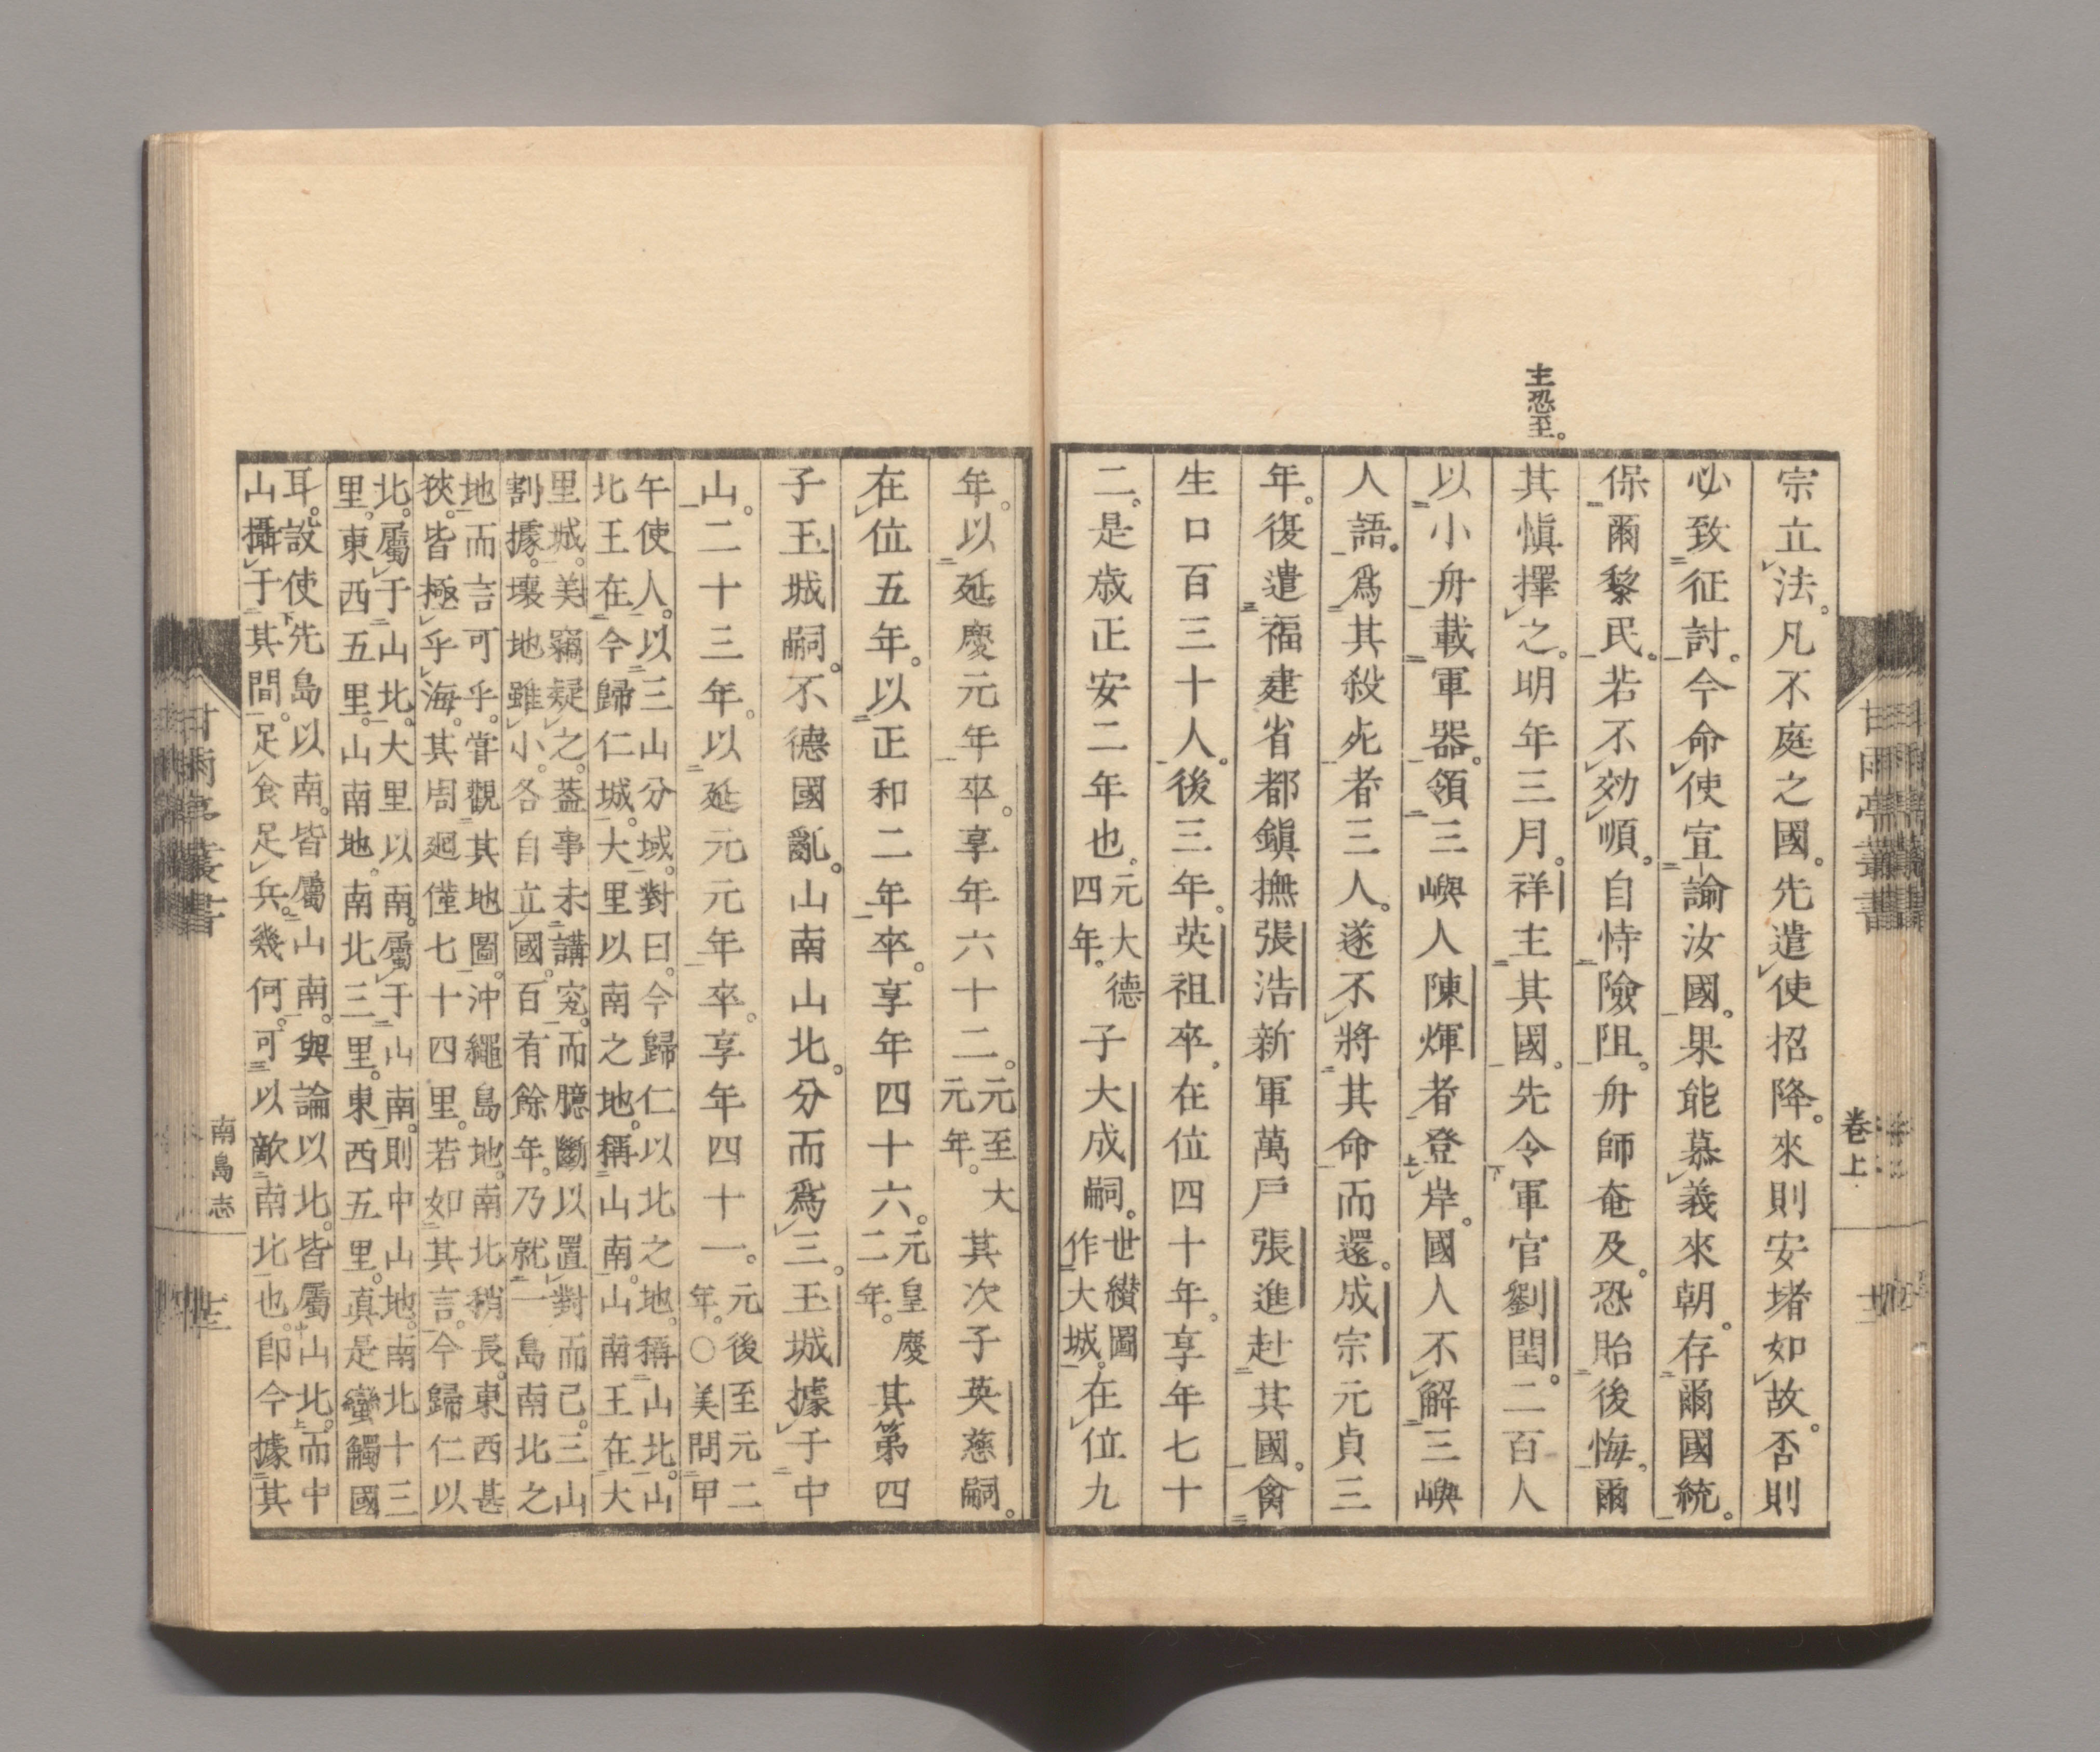 主恐至。
宗立法。凡不庭之國。先遣使招降。來則安堵如故。否則
必致征討。今命使宣諭汝國。果能慕義來朝。存爾國統。
保爾黎民。若不効順。自恃險阻。舟師奄及。恐貽後悔。爾
其愼擇之。明年三月。祥主其國。先令軍官劉閏。二百人
以小舟載軍器。領三嶼人陳煇者登岸。國人不解三嶼
人語。爲其殺死者三人。遂不將其命而還。成宗元貞三
年。復遣福建省都鎭撫張浩新軍萬戶張進赴其國。禽
生口百三十人。後三年。英祖卒。在位四十年。享年七十
二。是歳正安二年也。元大德四年。子大成嗣。世纉圖作大城。在位九
卷上
甘雨亭叢書
年。以延慶元年卒。享年六十二。元至大元年。其次子英慈嗣。
在位五年。以正和二年卒。享年四十六。元皇慶二年。其第四
子玉城嗣。不德國亂。山南山北。分而爲三。玉城據于中
山。二十三年。以延元元年卒。享年四十一。元後至元二年。〇美問甲
午使人。以三山分域。對曰。今歸仁以北之地。稱山北。山
北王在今歸仁城。大里以南之地。稱山南。山南王在大
里城。美竊疑之。蓋事未講究。而臆斷以置對而已。三山
割據。壤地雖小。各自立國。百有餘年。乃就一島南北之
地而言可乎。甞觀其地圖。沖繩島地。南北稍長。東西甚
狹。皆極乎海。其周廻僅七十四里。若如其言。今歸仁以
北。屬于山北。大里以南。屬于山南。則中山地。南北十三
里。東西五里。山南地。南北三里。東西五里。眞是蠻觸國
耳。設使先島以南。皆屬山南。與論以北。皆屬山北。而中
山攝于其間。足食足兵。幾何。可以敵南北也。卽今據其
南島志
甘雨亭叢書